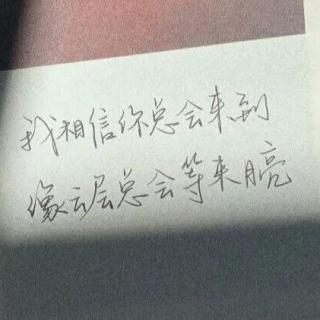 我相信你总会来到
像云层总会等来月亮